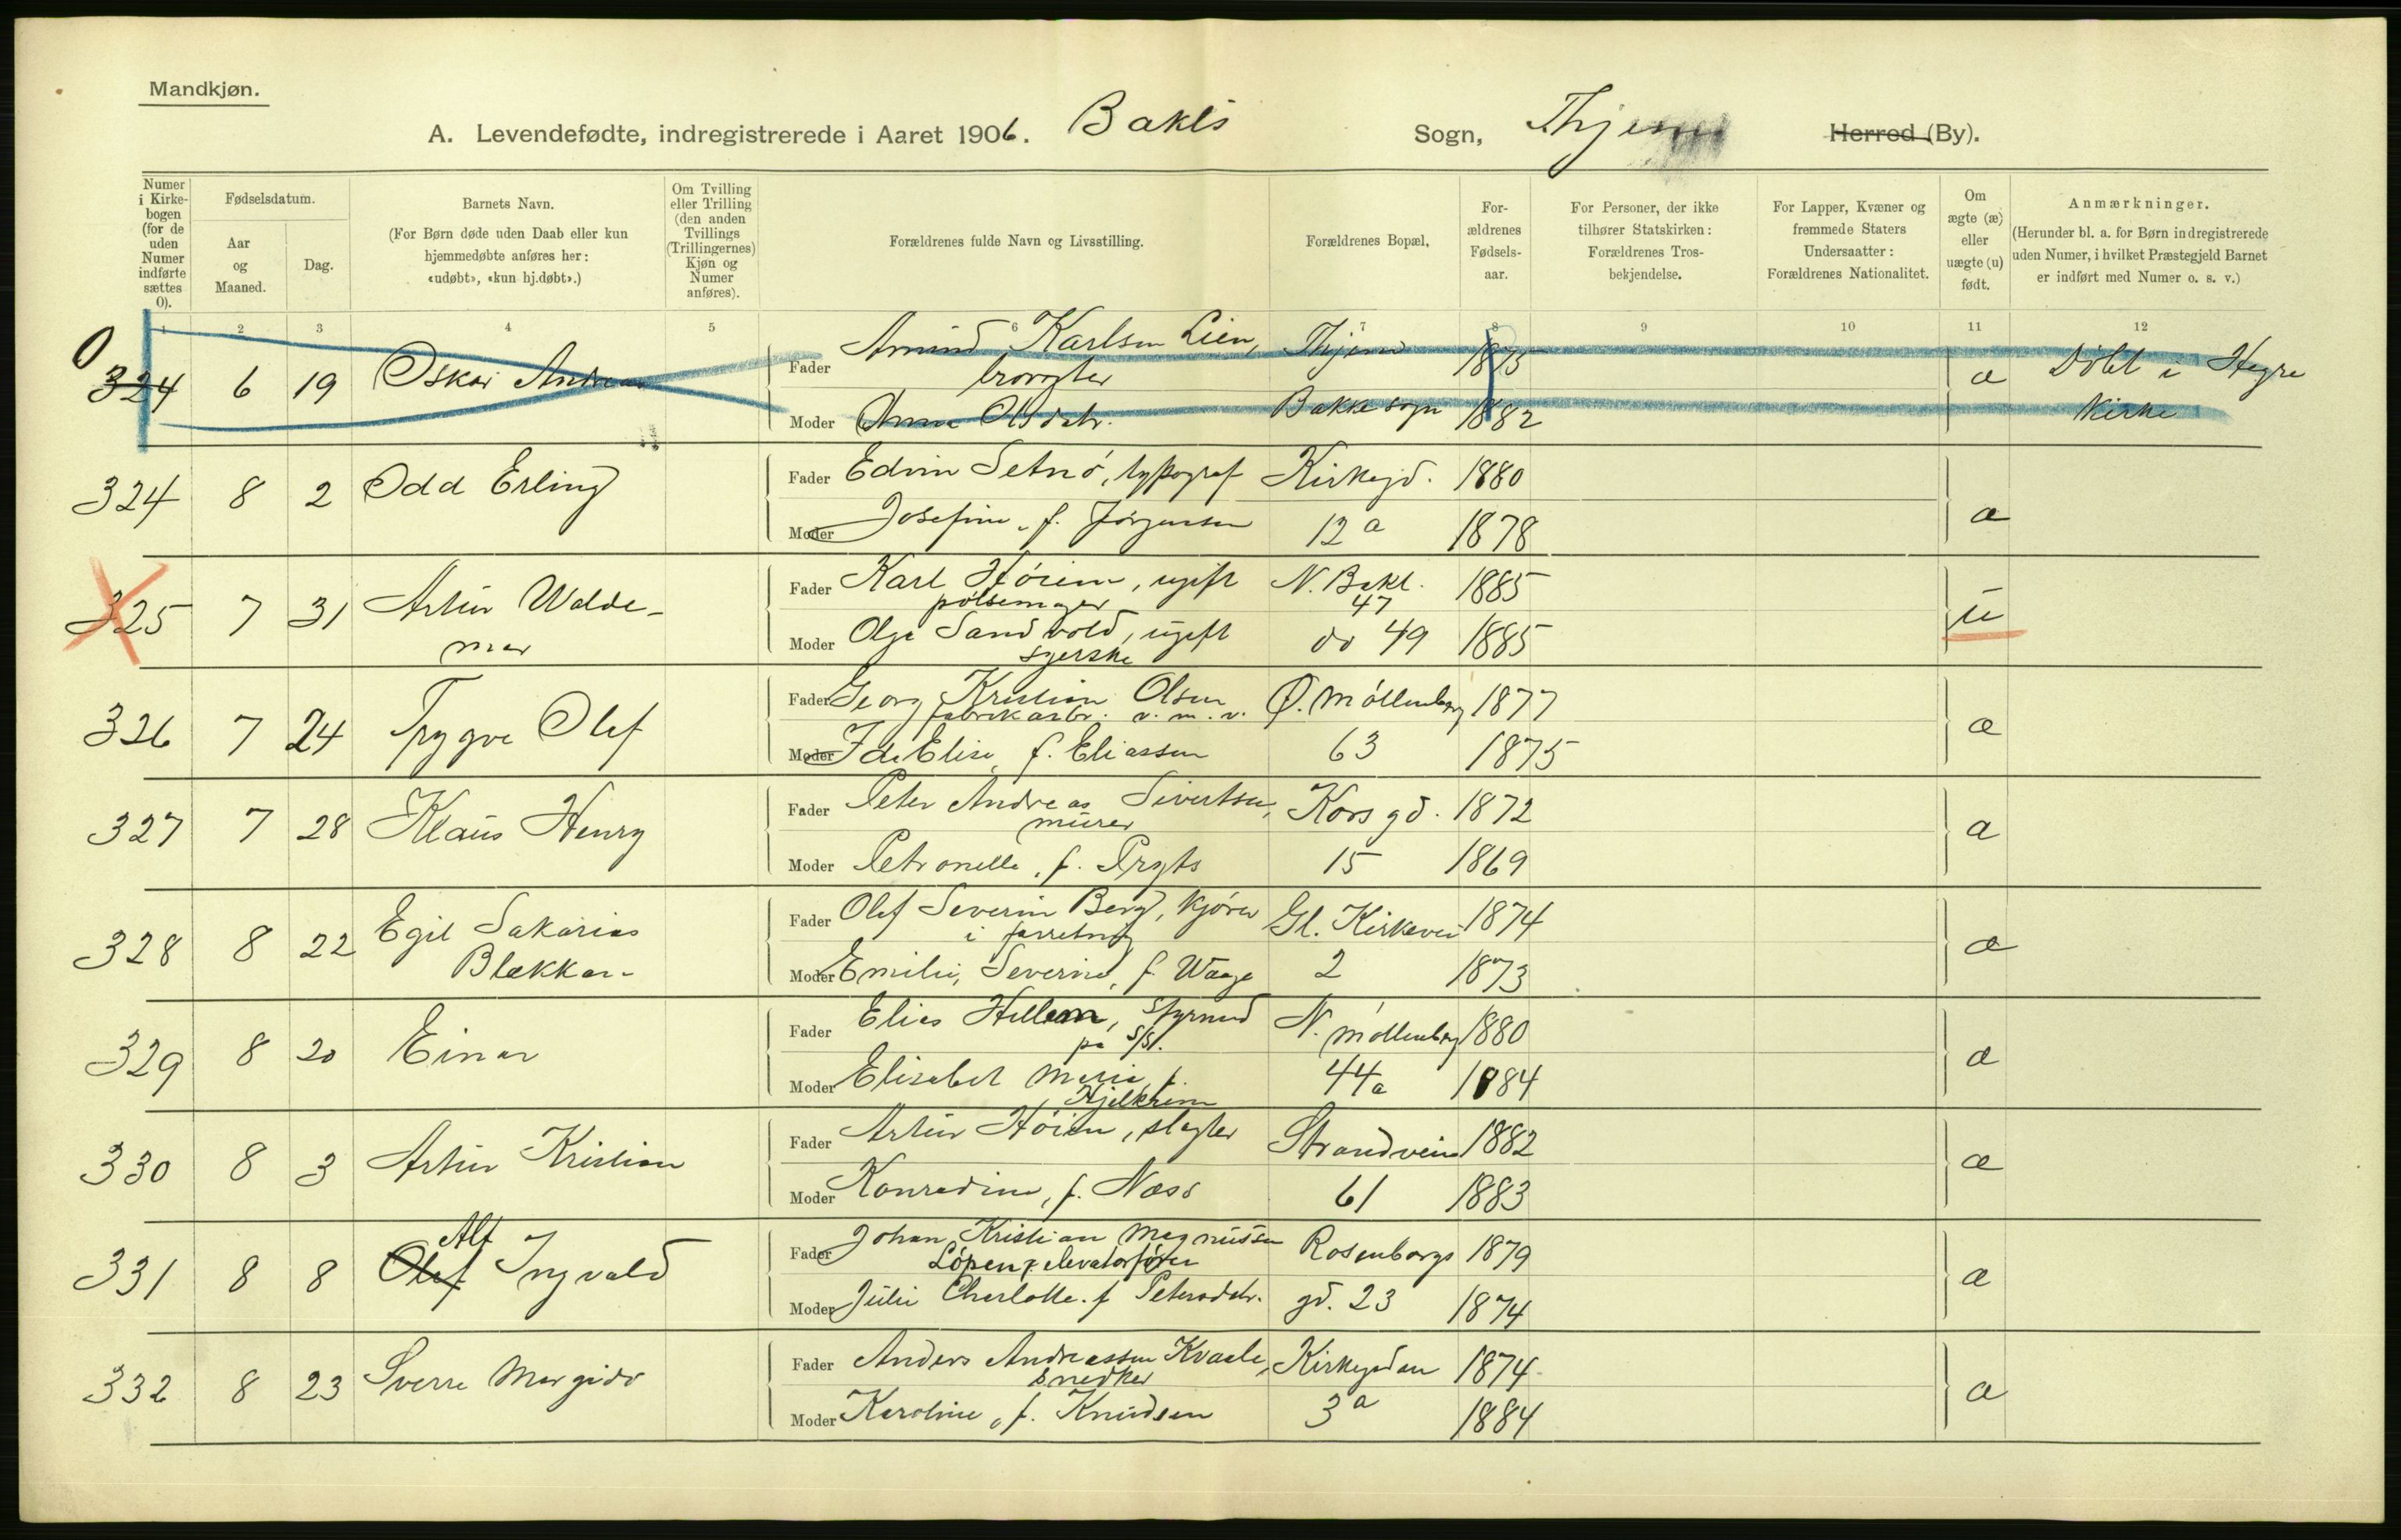 Mandkjøn.
A. Levendefødte, indregistrerede i Aaret 1906. Bakls Sogn, Thjem Herred (By).
Numer i Kirkebogen (for de uden Numer indførte sættes 0).
Fødselsdatum.
Aar og Maaned.
Dag.
Barnets Navn.
(For Børn døde uden Daab eller kun hjemmedøbte anføres her: «udøbt», «kun hj.døbt».)
Om Tvilling eller Trilling (den anden Tvillings (Trillingernes) Kjøn og Numer anføres).
Forældrenes fulde Navn og Livsstilling.
Forældrenes Bopæl,
Forældrenes Fødselsaar.
For Personer, der ikke tilhører Statskirken: Forældrenes Trosbekjendelse.
For Lapper, Kvæner og fremmede Staters Undersaatter: Forældrenes Nationalitet.
Om ægte (æ) eller uægte (u) født.
Anmærkninger.
(Herunder bl. a. for Børn indregistrerede uden Numer, i hvilket Præstegjeld Barnet er indført med Numer o. s. v.)
1 2 3 4 5 6 7 8 9 10 11 12
0
324 6 19 Oskar Andreas Fader Karlsen Lien, Thjem 1875 æ Döbt i Hegre
Moder Anna Olsdatr. Bakke sogn 1882 Kirke
324 8 2 Odd Erling Fader Edvin Setnö, typograf Kirkegd. 1880 æ
Moder Josefine, f. Jörgensen 12 a 1878
325 7 31 Artur Walde- Fader Karl Höiem, ugift N. Bakl. 1885 u
pölsemager 47
mar Moder Olga Sandvold, ugift do 49 1885
syerske
326 7 24 Trygve Olef Fader Georg Kristian Olsen Ø. Möllenberg 1877 æ
fabrikarbr. v. m. v.
Moder Ida Elise, f. Eliassen 63 1875
327 7 28 Klaus Henry Fader Peter Andreas Sivertsen, Korsgd. 1872 æ
murer
Moder Petronelle, f. Prytz 15 1869
328 8 22 Egil Sakarias Fader Olef Severin Berg, kjörer Gl. Kirkevei 1874 æ
i forretning
Blekkan- Moder Emilie, Severine, f. Waage 2 1873
329 8 20 Einar Fader Elias Hellem, styrmd N. Möllenberg 1880 æ
pa S/S.
Moder Elisabet Marie f. 44a 1884
Hjelkrem
330 8 3 Artur Kristian Fader Artur Höiem, slagter Strandveien 1882 æ
Moder Konradine, f. Næss 61 1883
Alf
331 8 8 Olef Ingvald Fader Johan Kristian Magnussen Rosenborgs 1879 æ
elevatorförer
Moder Julie Charlotte. f Petersdatr. gd. 23 1874
332 8 23 Sverre Margido Fader Anders Andreassen Kvaale, Kirkegaden 1874 æ
snedker
Moder Karoline, f. Knudsen 3 a 1884